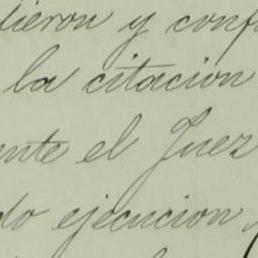 dieron y conf
la citacion
nte el Juez
do ejecucion